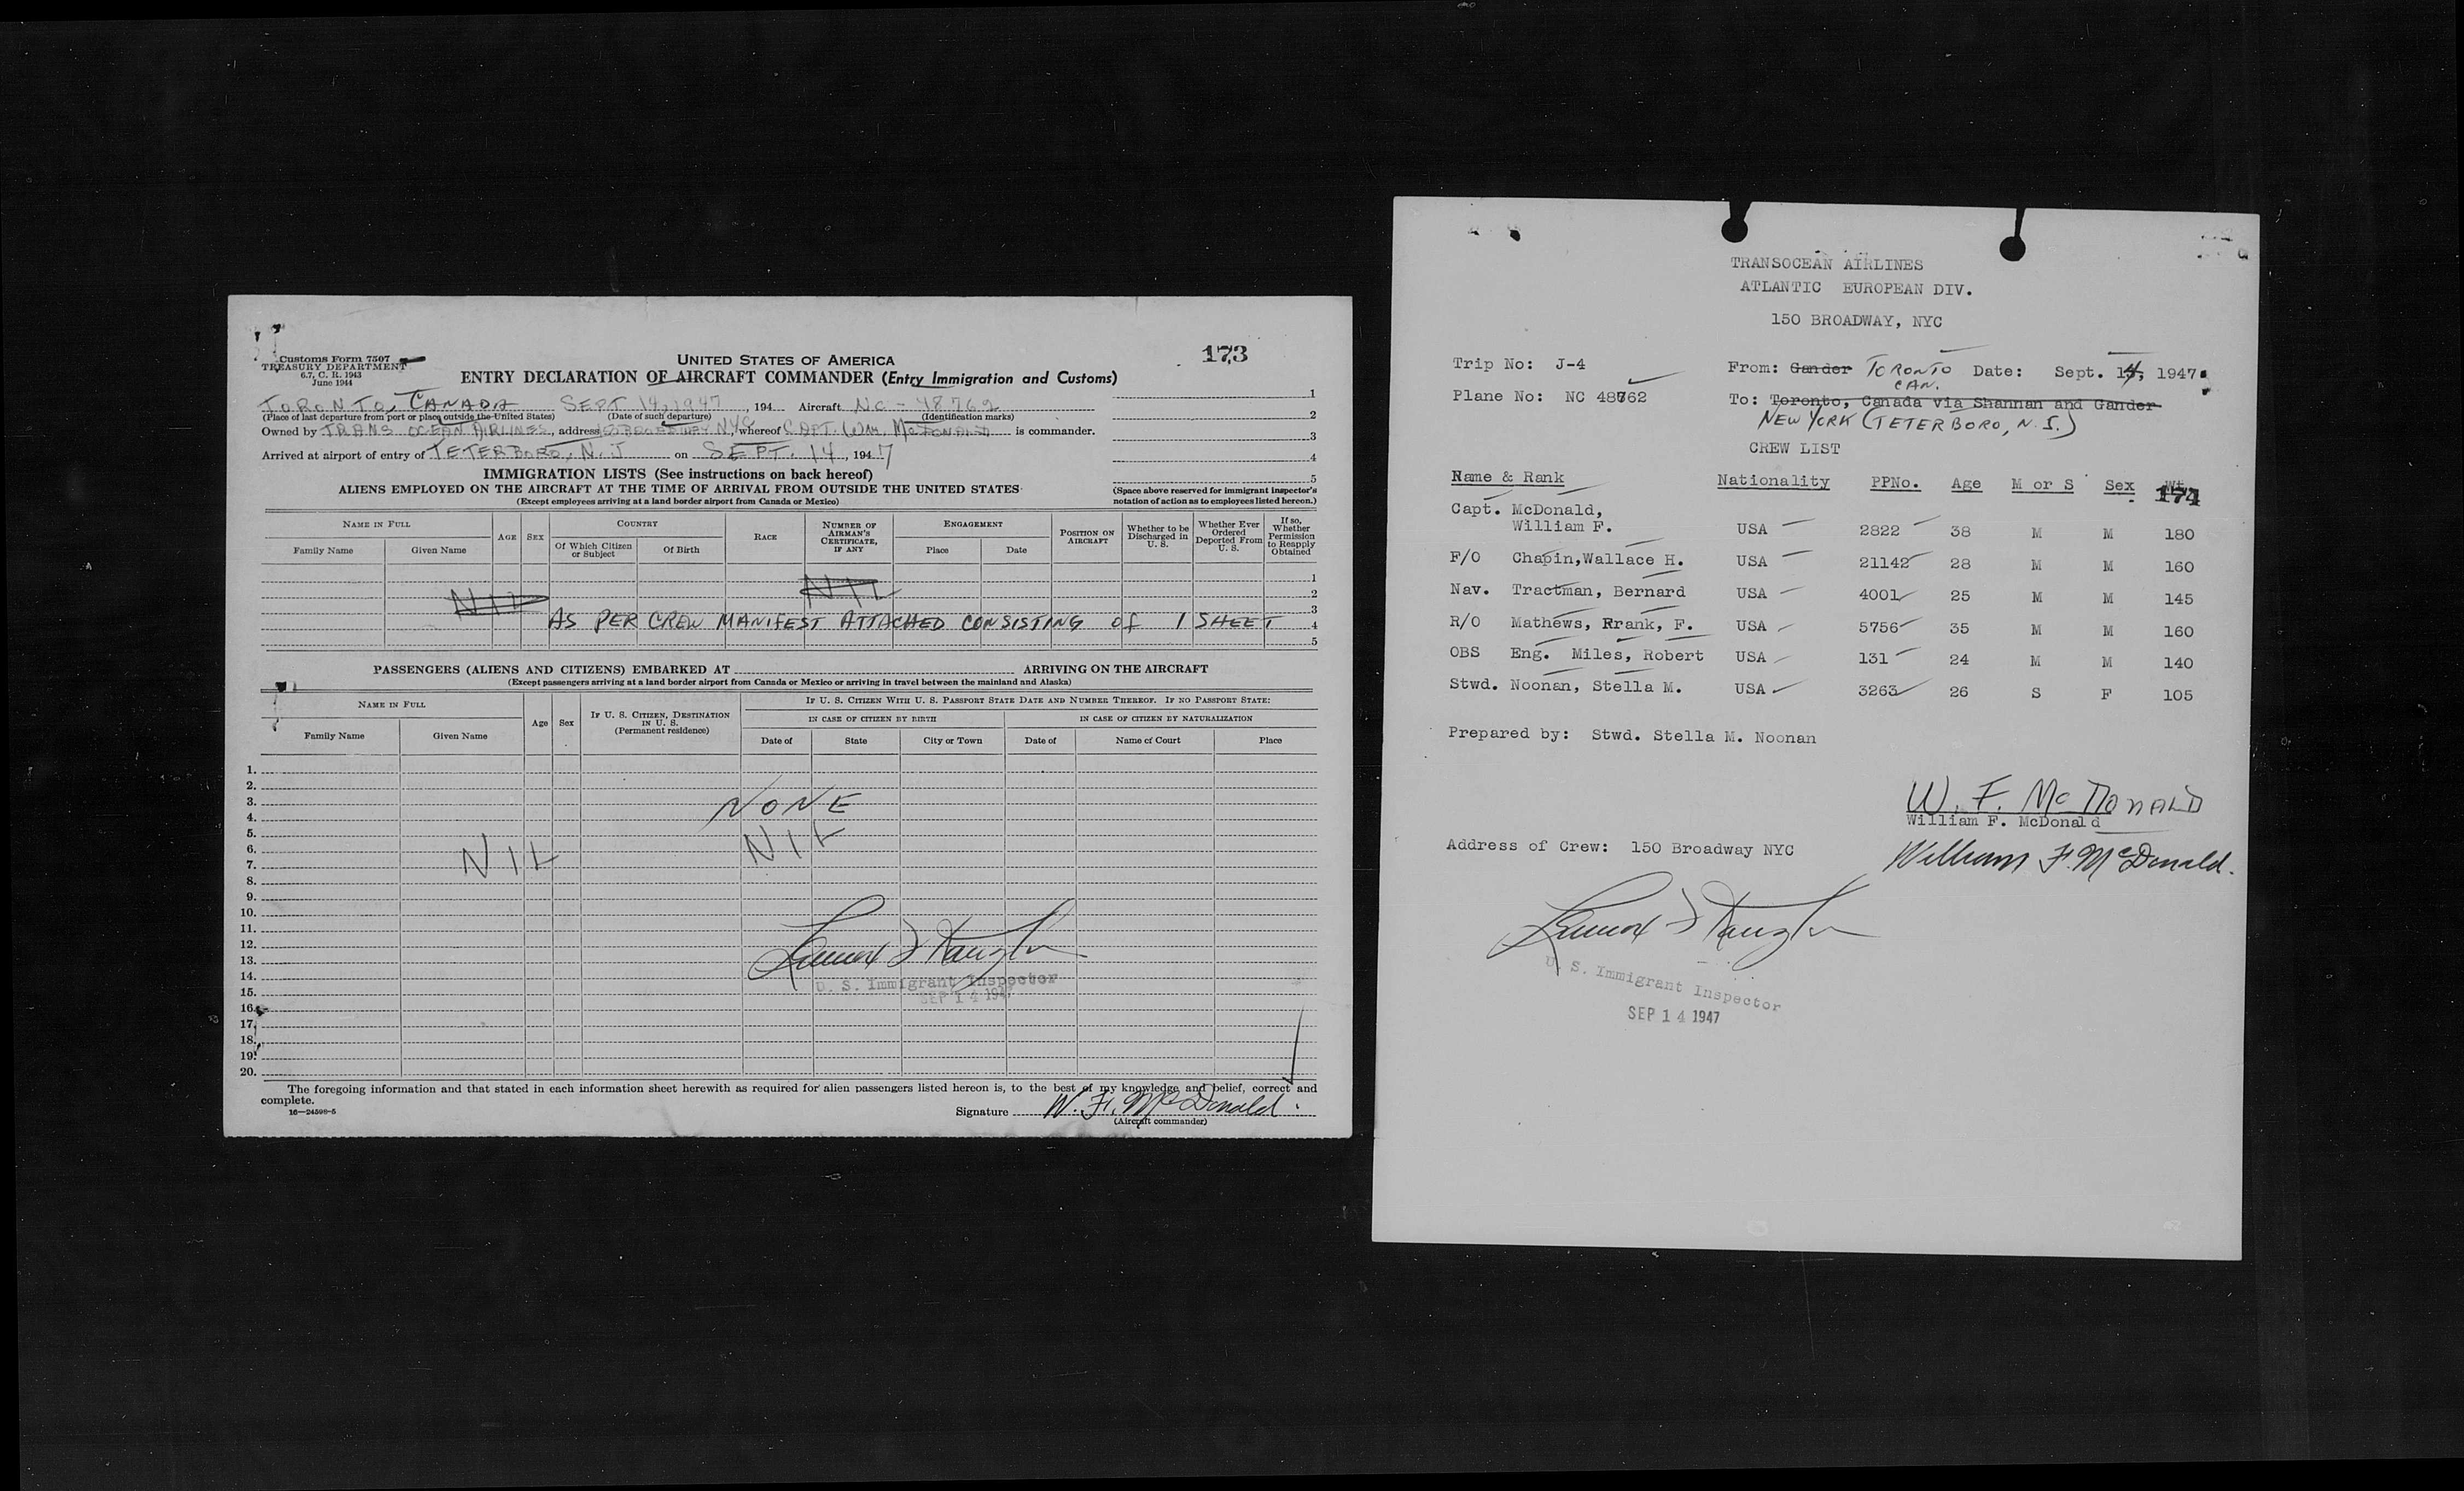 Customs Form 7507
TREASURY DEPARTMENT
6.7, C. R. 1943
June 1944
UNITED STATES OF AMERICA
ENTRY DECLARATION OF AIRCRAFT COMMANDER (Entry Immigration and Customs)
173
TORONTO, CANADA SEPT 14, 1947, 194 Aircraft NC-48762
(Place of last departure from port or place outside the United States) (Date of such departure) (Identification marks)
Owned by TRANS OCEAN AIRLINES, address 150 BROADWAY NYC, whereof CAPT. WM. McDONALD is commander.
Arrived at airport of entry of TETERBORO, N. J on SEPT. 14, 1947
1
2
3
4
5
IMMIGRATION LISTS (See instructions on back hereof)
ALIENS EMPLOYED ON THE AIRCRAFT AT THE TIME OF ARRIVAL FROM OUTSIDE THE UNITED STATES
(Except employees arriving at a land border airport from Canada or Mexico)
(Space above reserved for immigrant inspector's
notation of action as to employees listed hereon.)
NAME IN FULL
Family Name
Given Name
AGE
SEX
COUNTRY
Of Which Citizen or Subject
Of Birth
RACE
NUMBER OF AIRMAN'S CERTIFICATE, IF ANY
ENGAGEMENT
Place
Date
POSITION ON AIRCRAFT
Whether to be Discharged in U. S.
Whether Ever Ordered Deported From U. S.
If so, Whether Permission to Reapply Obtained
NIL
1
2
NIL
3
AS PER CREW MANIFEST ATTACHED CONSISTING of 1 SHEET 4
5
PASSENGERS (ALIENS AND CITIZENS) EMBARKED AT ARRIVING ON THE AIRCRAFT
(Except passengers arriving at a land border airport from Canada or Mexico or arriving in travel between the mainland and Alaska)
NAME IN FULL
Family Name
Given Name
Age
Sex
IF U. S. CITIZEN, DESTINATION IN U. S.
(Permanent residence)
IF U. S. CITIZEN WITH U. S. PASSPORT STATE DATE AND NUMBER THEREOF. IF NO PASSPORT STATE:
IN CASE OF CITIZEN BY BIRTH
IN CASE OF CITIZEN BY NATURALIZATION
Date of
State
City or Town
Date of
Name of Court
Place
1.
2.
3. NONE
4.
5. NIL
6. NIL
7.
8.
9.
10.
11.
12.
13.
14.
15.
16.
17.
18.
19.
20.
U. S. Immigrant Inspector
SEP 14 1947
The foregoing information and that stated in each information sheet herewith as required for alien passengers listed hereon is, to the best of my knowledge and belief, correct and
complete.
16—24598-5
Signature W. F. McDonald.
(Aircraft commander)
TRANSOCEAN AIRLINES
ATLANTIC EUROPEAN DIV.
150 BROADWAY, NYC
Trip No: J-4
From: Gander TORONTO CAN. Date: Sept. 14, 1947
Plane No: NC 48762
To: Toronto, Canada via Shannan and Gander
NEW YORK (TETERBORO, N. J.)
CREW LIST
Name & Rank Nationality PPNo. Age M or S Sex Wt.
174
Capt. McDonald,
William F. USA 2822 38 M M 180
F/O Chapin,Wallace H. USA 21142 28 M M 160
Nav. Tractman, Bernard USA 4001 25 M M 145
R/O Mathews, Rrank, F. USA 5756 35 M M 160
OBS Eng. Miles, Robert USA 131 24 M M 140
Stwd. Noonan, Stella M. USA 3263 26 S F 105
Prepared by: Stwd. Stella M. Noonan
W. F. McDONALD
William F. McDonald
Address of Crew: 150 Broadway NYC
William F. McDonald.
U. S. Immigrant Inspector
SEP 14 1947